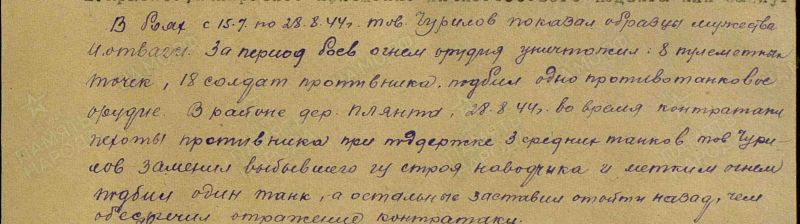 В боях с 15.7. по 28.8.44г. тов. Чурилов показал образцы мужества
и отваги. За период боев огнем орудия уничтожил: 8 пулеметных
точек, 18 солдат противника, подбил одно противотанковое
орудие. В районе дер. Плянта, 28.8.44г. во время контратаки
пехоты противника при подержке 3 средних танков тов Чури-
лов заменил выбывшего из строя наводчика и метким огнем
подбил один танк, а остальные заставил отойти назад, чем
обеспечил отражение контратаки.